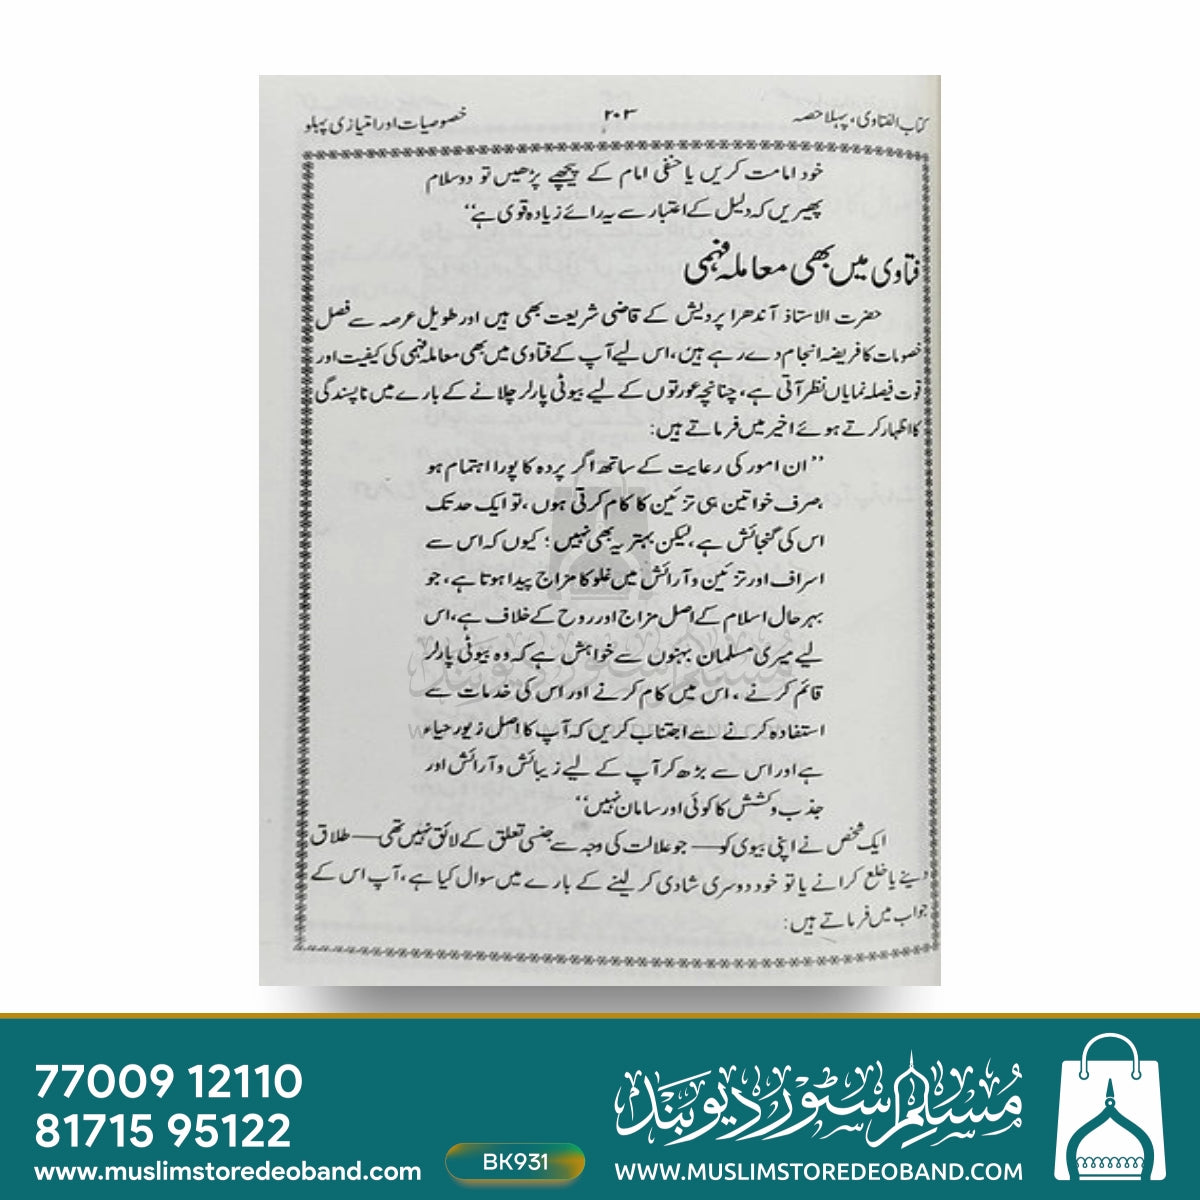 کتاب الفتاوی، پہلا حصہ ۲۰۳ خصوصیات اور امتیازی پہلو
خود امامت کریں یا حنفی امام کے پیچھے پڑھیں تو دو سلام
پھیریں کہ دلیل کے اعتبار سے یہ رائے زیادہ قوی ہے‘‘
فتاوی میں بھی معاملہ فہمی
حضرت الاستاذ آندھرا پردیش کے قاضی شریعت بھی ہیں اور طویل عرصہ سے فصل
خصومات کا فریضہ انجام دے رہے ہیں، اس لیے آپ کے فتاوی میں بھی معاملہ فہمی کی کیفیت اور
قوت فیصلہ نمایاں نظر آتی ہے، چنانچہ عورتوں کے لیے بیوٹی پارلر چلانے کے بارے میں ناپسندگی
کا اظہار کرتے ہوئے اخیر میں فرماتے ہیں:
’’ان امور کی رعایت کے ساتھ اگر پردہ کا پورا اہتمام ہو
صرف خواتین ہی تزئین کا کام کرتی ہوں، تو ایک حد تک
اس کی گنجائش ہے، لیکن بہتر یہ بھی نہیں؛ کیوں کہ اس سے
اسراف اور تزئین و آرائش میں غلو کا مزاج پیدا ہوتا ہے، جو
بہر حال اسلام کے اصل مزاج اور روح کے خلاف ہے، اس
لیے میری مسلمان بہنوں سے خواہش ہے کہ وہ بیوٹی پارلر
قائم کرنے، اس میں کام کرنے اور اس کی خدمات سے
استفادہ کرنے سے اجتناب کریں کہ آپ کا اصل زیور حیاء
ہے اور اس سے بڑھ کر آپ کے لیے زیبائش و آرائش اور
جذب و کشش کا کوئی اور سامان نہیں‘‘
ایک شخص نے اپنی بیوی کو — جو علالت کی وجہ سے جنسی تعلق کے لائق نہیں تھی — طلاق
دینے یا خلع کرانے یا تو خود دوسری شادی کر لینے کے بارے میں سوال کیا ہے، آپ اس کے
جواب میں فرماتے ہیں:
مسلم سٹور دیوبند
WWW.MUSLIMSTOREDEOBAND.COM
77009 12110
81715 95122
www.muslimstoredeoband.com
BK931
مسلم سٹور دیوبند
WWW.MUSLIMSTOREDEOBAND.COM